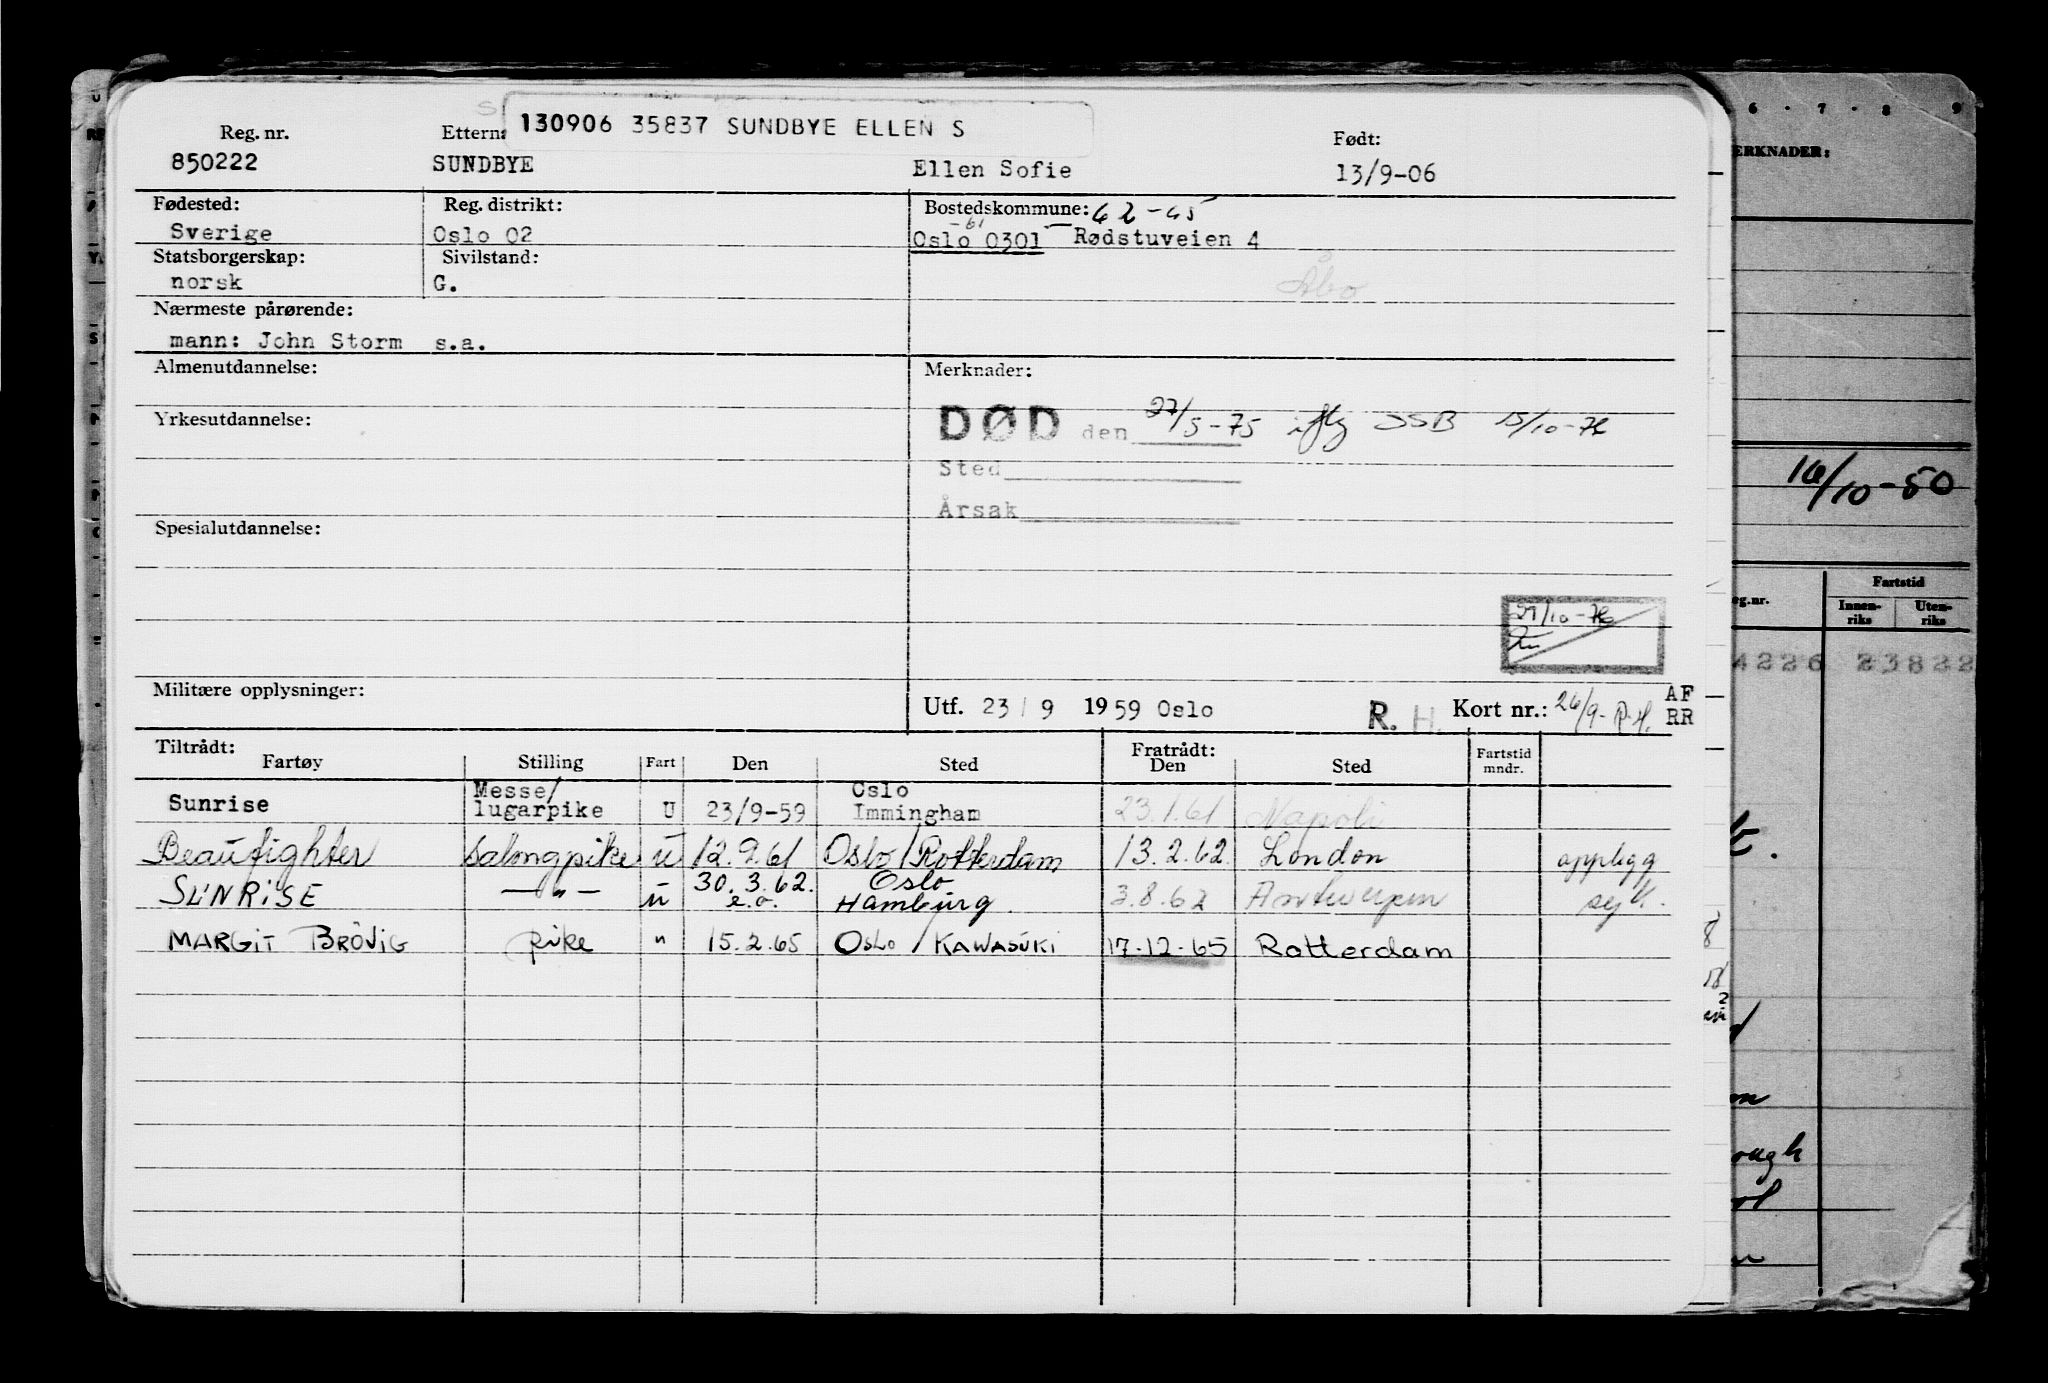 130906 35837 SUNDBYE ELLEN S
Reg. nr. Etterna Født:
850222 SUNDBYE Ellen Sofie 13/9-06
Fødested: Reg. distrikt: Bostedskommune: 62-65
-61
Sverige Oslo 02 Oslo 0301 Rødstuveien 4
Statsborgerskap: Sivilstand:
norsk G. Åbo
Nærmeste pårørende:
mann: John Storm s.a.
Almenutdannelse: Merknader:
Yrkesutdannelse: DØD den 27/5-75 iflg SSB 15/10-76
Sted
Årsak
Spesialutdannelse:
27/10-76
Militære opplysninger: Utf. 23/9 1959 Oslo R. H. Kort nr.: 26/9- R.H. AF
RR
Tiltrådt: Fratrådt:
Fartøy Stilling Fart Den Sted Den Sted Fartstid
mndr.
Messe/ Oslo
Sunrise lugarpike U 23/9-59 Immingham 23.1.61 Napoli
Beaufighter salongpike u 12.9.61 Oslo/Rotterdam 13.2.62 London opplegg
SUNRISE —"— u 30.3.62. e.o. Oslo Hamburg. 3.8.62 Antwerpen
MARGIT BRÖVIG pike " 15.2.65 OSLO / KAWASUKI 17-12-65 Rotterdam
6 · 7 · 8 9
ERKNADER:
16/10-50
eg.nr. Fartstid
Innen-
riks Uten-
riks
4226 23822
ough